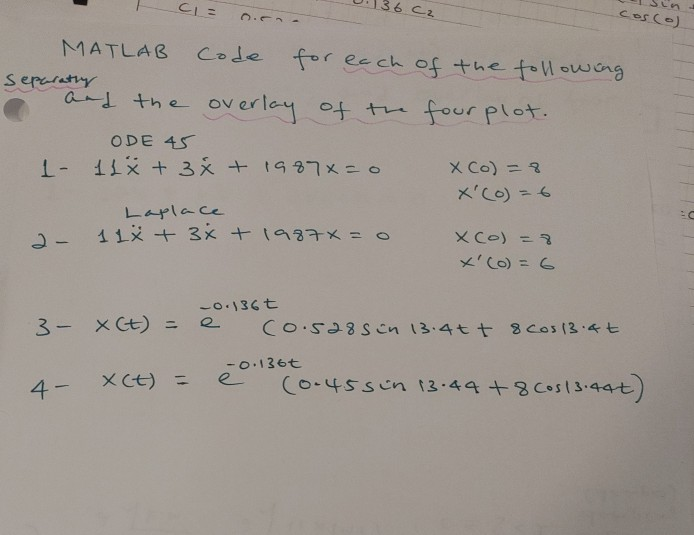 C1 = 0.5
0.136 C2
sin
cos(0)
MATLAB Code for each of the following
separatly
and the overlay of the four plot.
ODE 45
1- 11ẍ + 3ẋ + 1987x = 0 x(0) = 8
x'(0) = 6
Laplace
2- 11ẍ + 3ẋ + 1987x = 0 x(0) = 8
x'(0) = 6
3- x(t) = e^-0.136t (0.528 sin 13.4t + 8 cos 13.4t
4- x(t) = e^-0.136t (0.45 sin 13.44 + 8 cos 13.44t)